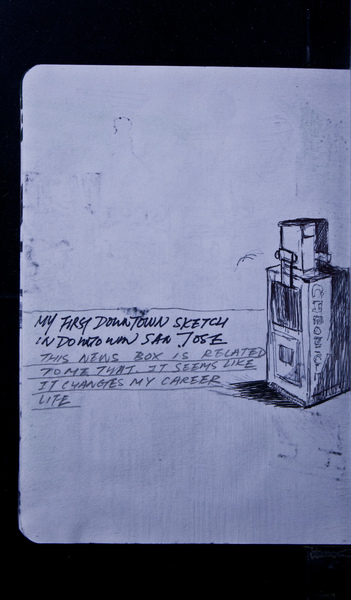 MY FIRST DOWNTOWN SKETCH
IN DOWTOWN SAN JOSE
THIS NEWS BOX IS RELATED
TO ME THAT IT SEEMS LIKE
IT CHANGES MY CAREER
LIFE